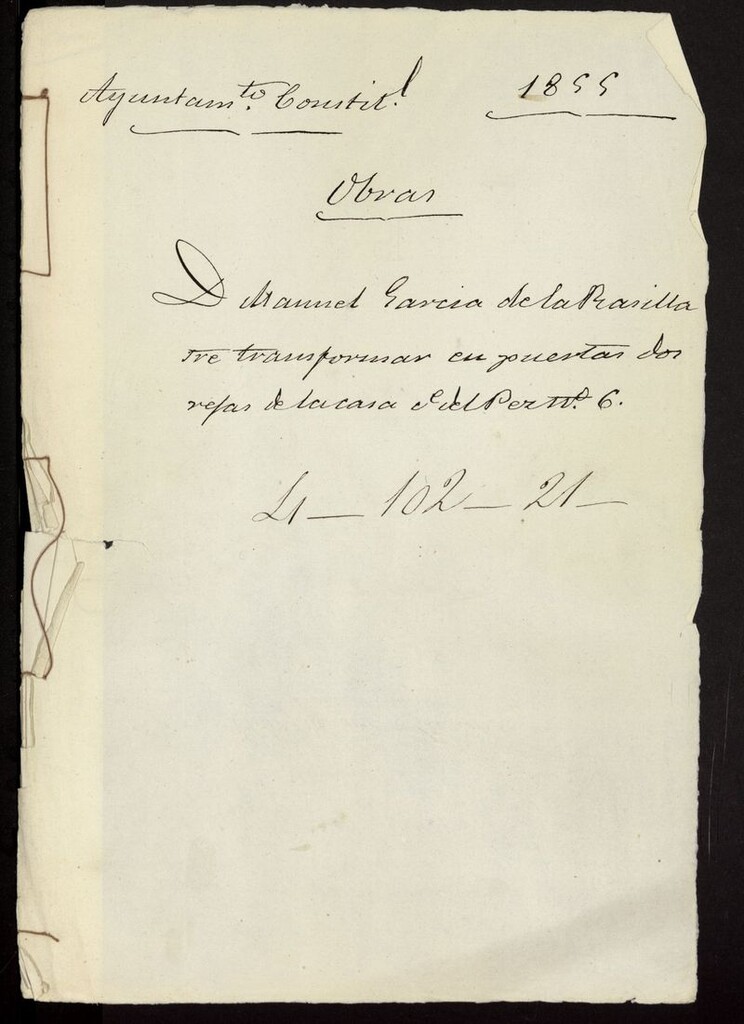 Ayuntam.to Constit.l 1855
Obras
D Manuel Garcia de la Rasilla
sre transformar en puertas dos
rejas de la casa C. del Pez n.o 6.
4 — 102 — 21 —